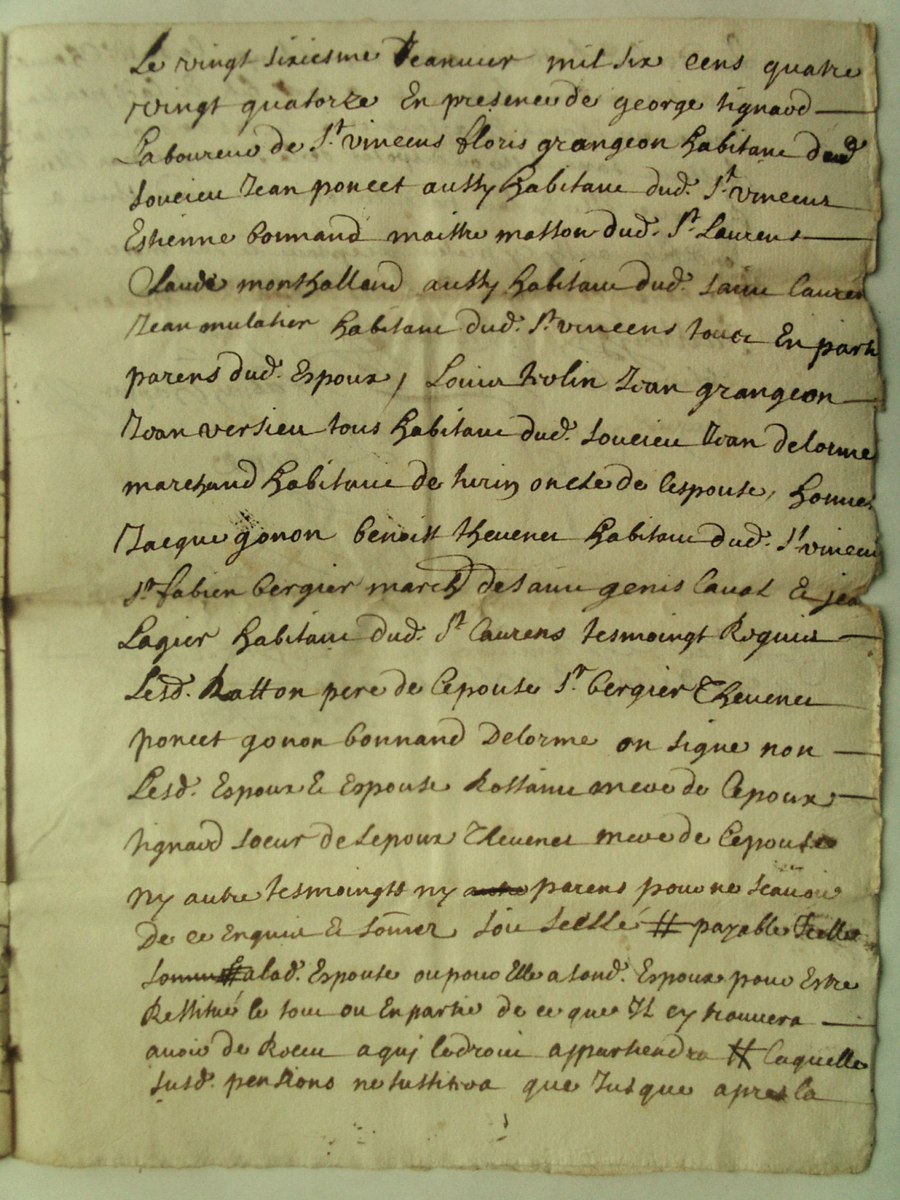 Le vingt sixiesme Jeanuier mil six cens quatre
vingt quatorze En presence de george tignaud
Laboureur de St. vincens floris grangeon habitant dud.
Soucieu Jean poncet aussy habitant dud. St. vincens
Estienne bonnand maistre masson dud. St. Laurens
Claude monthalland aussy habitant dud. Saint Lauren
Jean mulatier habitant dud. St. vincens tous En part
parens dud. Espoux, Louis Jean grangeon
Jean versieu tous habitant dud. Soucieu Jean delorme
marchand habitant de turin oncle de lespouse, honne.
Jacque gonon benoist thevenet habitant dud. St. vincen
Sr. fabien bergier march de saint genis Laval & jea
Lagier habitant dud. St. Laurens tesmoingt Requis
Lesd. Ratton pere de lepouse Sr. bergier Thevenet
poncet gonon bonnand Delorme on signe non
Lesd. Espoux & Espouse Rossaine mere de lepoux
tignaud soeur de lepoux Thevenet mere de lepouse
ny autre tesmoingtz ny parens pour ne scauoir
De ce Enquis & somez soit scelle # payable
# alad. Espouse ou pour Elle a sond. Espoux pour Estre
Restitué le tout ou En partie de ce que Il cy trouuera
auoir de Receu a quj ledroit appartiendra # Laquelle
susd. pensions ne sustitura que Jusque apres la